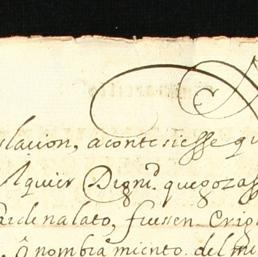 slacion, acontesiesse qu
Aquier Dignd. que gozass
Cardenalato, fuessen Criol
ô nombramiento del mi